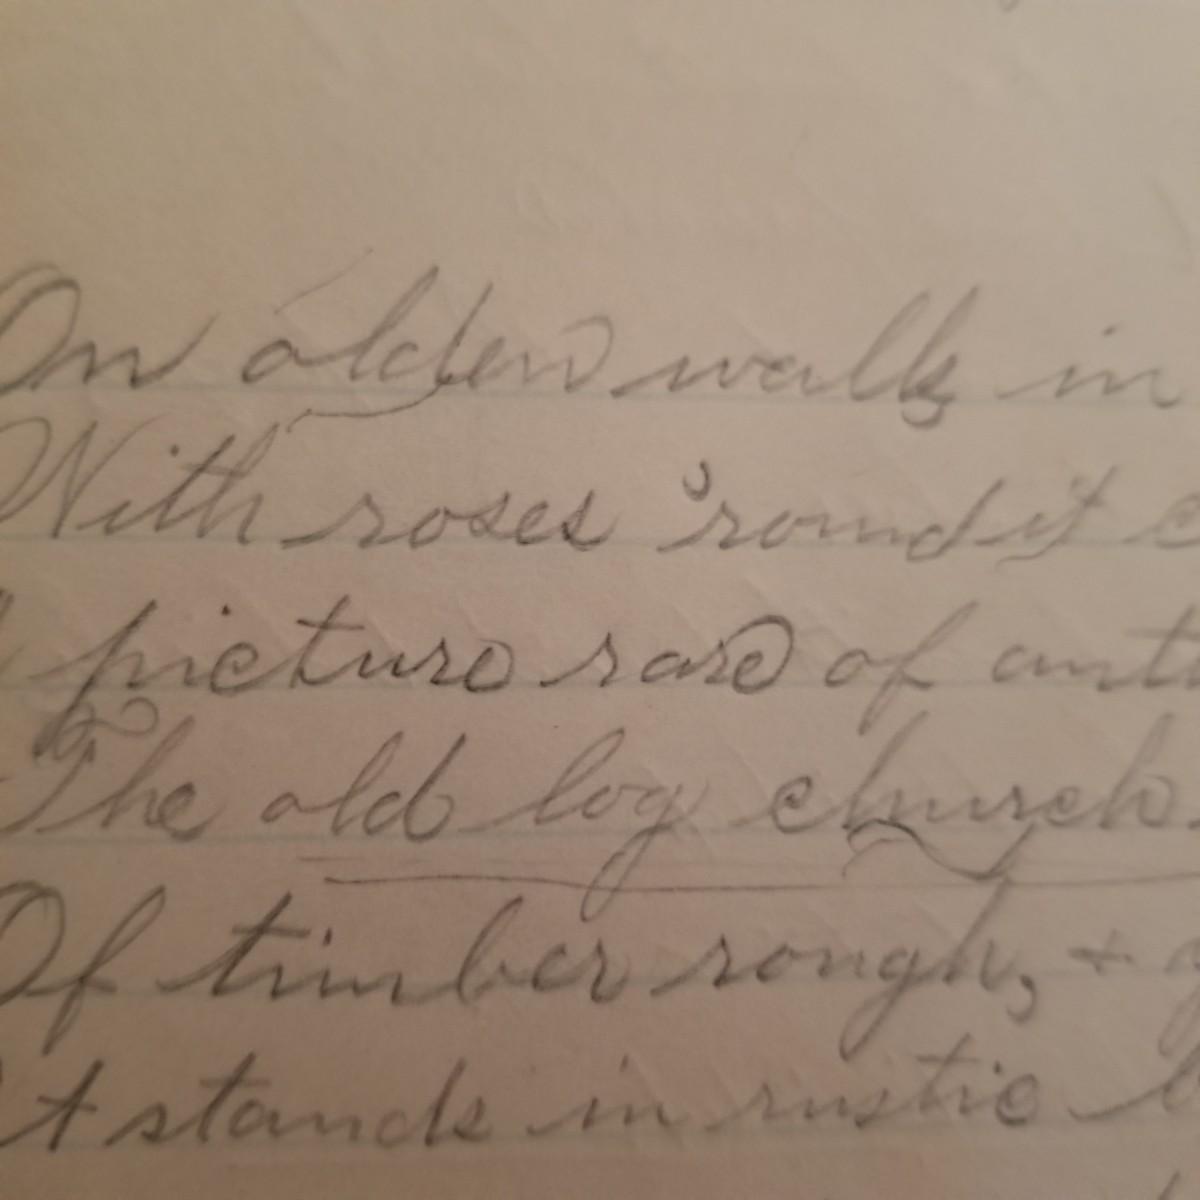 On olden walls in
With roses 'round it
picture rare of
The old log church.
Of timber rough, +
It stands in rustic